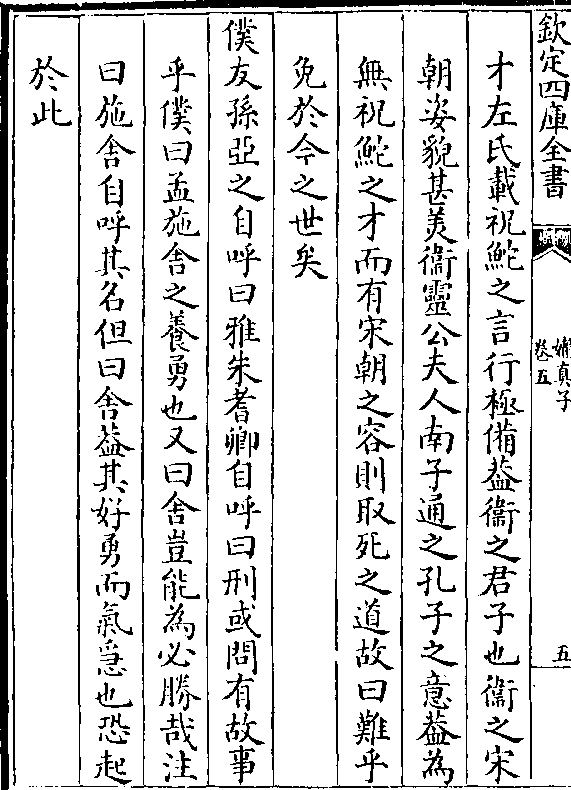 欽定四庫全書
嬾真子
卷五
五
才左氏載祝鮀之言行極備葢衞之君子也衞之宋
朝姿貌甚美衞靈公夫人南子通之孔子之意葢為
無祝鮀之才而有宋朝之容則取死之道故曰難乎
免於今之世矣
僕友孫亞之自呼曰雅朱耆卿自呼曰刑或問有故事
乎僕曰孟施舍之養勇也又曰舍豈能為必勝哉注
曰施舍自呼其名但曰舍葢其好勇而氣急也恐起
於此